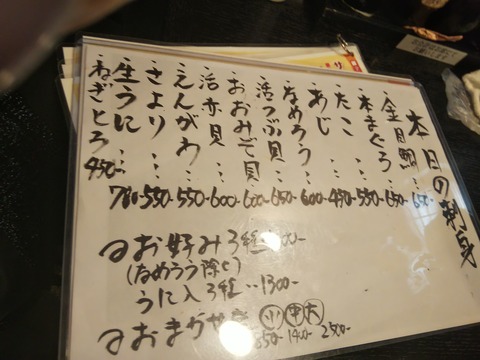 本日の刺身
・金目鯛… 650-
・本まぐろ… 650-
・たこ… 550-
・あじ… 450-
・なめろう… 600-
・活つぶ貝… 650-
・おおみぞ貝 600-
・活赤貝… 600-
・えんがわ… 550-
・さより… 550-
・生うに…
・ねぎとろ 450-
お好み3種
(なめろう除く)
うに入3種…1300-
おまかせ 小 中 大
1400- 2500-